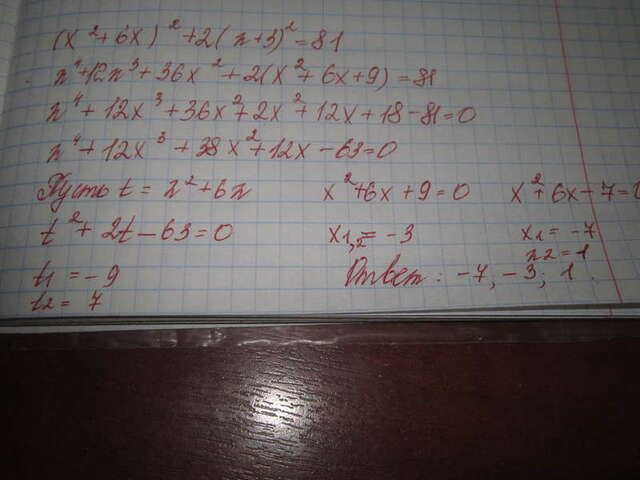 (x²+6x)²+2(x+3)²=81
x⁴+12x³+36x²+2(x²+6x+9)=81
x⁴+12x³+36x²+2x²+12x+18-81=0
x⁴+12x³+38x²+12x-63=0
Пусть t=x²+6x x²+6x+9=0 x²+6x-7=0
t²+2t-63=0 x1,2=-3 x1=-7
x2=1
t1=-9 Ответ: -7, -3; 1.
t2=7